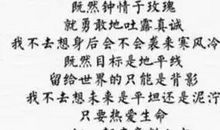 既然钟情于玫瑰
就勇敢地吐露真诚
我不去想身后会不会袭来寒风冷
既然目标是地平线
留给世界的只能是背影
我不去想未来是平坦还是泥泞
只要热爱生命